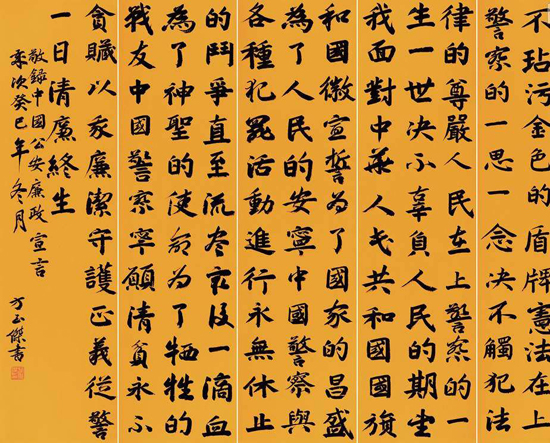 不玷污金色的盾牌憲法在上
警察的一思一念決不觸犯法
律的尊嚴人民在上警察的一
生一世決不辜負人民的期望
我面對中華人民共和國國旗
和國徽宣誓為了國家的昌盛
為了人民的安寧中國警察與
各種犯罪活動進行永無休止
的鬥爭直至流盡最後一滴血
為了神聖的使命為了牺牲的
戰友中國警察寧願清貧永不
貪贓以求廉潔守護正義從警
一日清廉終生
敬錄中國公安廉政宣言
歲次癸巳年冬月
方玉傑書